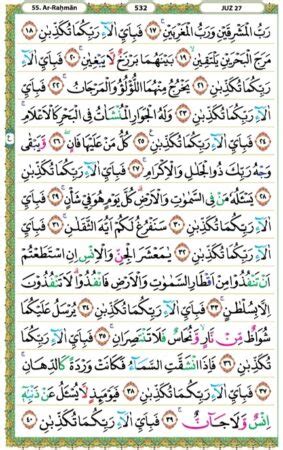 55. Ar-Raḥmān 532 JUZ 27
رَبُّ الْمَشْرِقَيْنِ وَرَبُّ الْمَغْرِبَيْنِ ﴿١٧﴾ فَبِأَيِّ آلَاءِ رَبِّكُمَا تُكَذِّبٰنِ ﴿١٨﴾
مَرَجَ الْبَحْرَيْنِ يَلْتَقِيٰنِ ﴿١٩﴾ بَيْنَهُمَا بَرْزَخٌ لَا يَبْغِيٰنِ ﴿٢٠﴾ فَبِأَيِّ
آلَاءِ رَبِّكُمَا تُكَذِّبٰنِ ﴿٢١﴾ يَخْرُجُ مِنْهُمَا اللُّؤْلُؤُ وَالْمَرْجَانُ ﴿٢٢﴾ فَبِأَيِّ
آلَاءِ رَبِّكُمَا تُكَذِّبٰنِ ﴿٢٣﴾ وَلَهُ الْجَوَارِ الْمُنْشَآتُ فِي الْبَحْرِ كَالْأَعْلَامِ
﴿٢٤﴾ فَبِأَيِّ آلَاءِ رَبِّكُمَا تُكَذِّبٰنِ ﴿٢٥﴾ كُلُّ مَنْ عَلَيْهَا فَانٍ ﴿٢٦﴾ وَيَبْقٰى
وَجْهُ رَبِّكَ ذُو الْجَلٰلِ وَالْإِكْرَامِ ﴿٢٧﴾ فَبِأَيِّ آلَاءِ رَبِّكُمَا تُكَذِّبٰنِ
﴿٢٨﴾ يَسْئَلُهُ مَنْ فِي السَّمٰوٰتِ وَالْأَرْضِ كُلَّ يَوْمٍ هُوَ فِي شَأْنٍ ﴿٢٩﴾ فَبِأَيِّ
آلَاءِ رَبِّكُمَا تُكَذِّبٰنِ ﴿٣٠﴾ سَنَفْرُغُ لَكُمْ أَيُّهَ الثَّقَلٰنِ ﴿٣١﴾ فَبِأَيِّ
آلَاءِ رَبِّكُمَا تُكَذِّبٰنِ ﴿٣٢﴾ يٰمَعْشَرَ الْجِنِّ وَالْإِنْسِ إِنِ اسْتَطَعْتُمْ
أَنْ تَنْفُذُوا مِنْ أَقْطَارِ السَّمٰوٰتِ وَالْأَرْضِ فَانْفُذُوا لَا تَنْفُذُونَ
إِلَّا بِسُلْطٰنٍ ﴿٣٣﴾ فَبِأَيِّ آلَاءِ رَبِّكُمَا تُكَذِّبٰنِ ﴿٣٤﴾ يُرْسَلُ عَلَيْكُمَا
شُوَاظٌ مِنْ نَارٍ وَنُحَاسٌ فَلَا تَنْتَصِرٰنِ ﴿٣٥﴾ فَبِأَيِّ آلَاءِ رَبِّكُمَا
تُكَذِّبٰنِ ﴿٣٦﴾ فَإِذَا انْشَقَّتِ السَّمَاءُ فَكَانَتْ وَرْدَةً كَالدِّهَانِ
﴿٣٧﴾ فَبِأَيِّ آلَاءِ رَبِّكُمَا تُكَذِّبٰنِ ﴿٣٨﴾ فَيَوْمَئِذٍ لَا يُسْئَلُ عَنْ ذَنْبِهِ
إِنْسٌ وَلَا جَانٌّ ﴿٣٩﴾ فَبِأَيِّ آلَاءِ رَبِّكُمَا تُكَذِّبٰنِ ﴿٤٠﴾